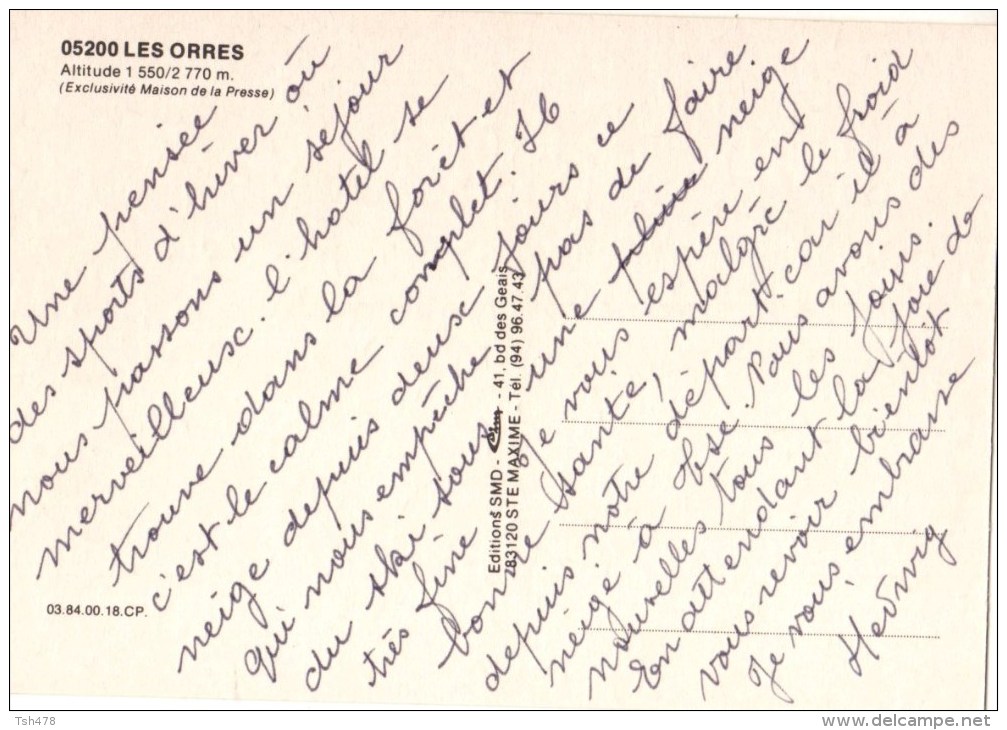 05200 LES ORRES
Altitude 1 550/2 770 m.
(Exclusivité Maison de la Presse)
Une pensée
des sports d'hiver où
nous passons un séjour
merveilleuse. l'hotel se
trouve dans la forêt et
c'est le calme complet. Il
neige depuis deux jours ce
qui nous empêche pas de faire
du ski sous une pluie neige
très fine. Je vous espère en
bonne santé, malgré le froid
depuis notre départ. car il à
neigé à Nous avons des
nouvelles tous les jours.
En attendant la joie de
vous revoir bientôt
Je vous embrasse
Editions SMD - - 41, bd des Geais
83120 STE MAXIME - Tél. (94) 96.47.43
03.84.00.18.CP.
Tsh478
www.delcampe.net